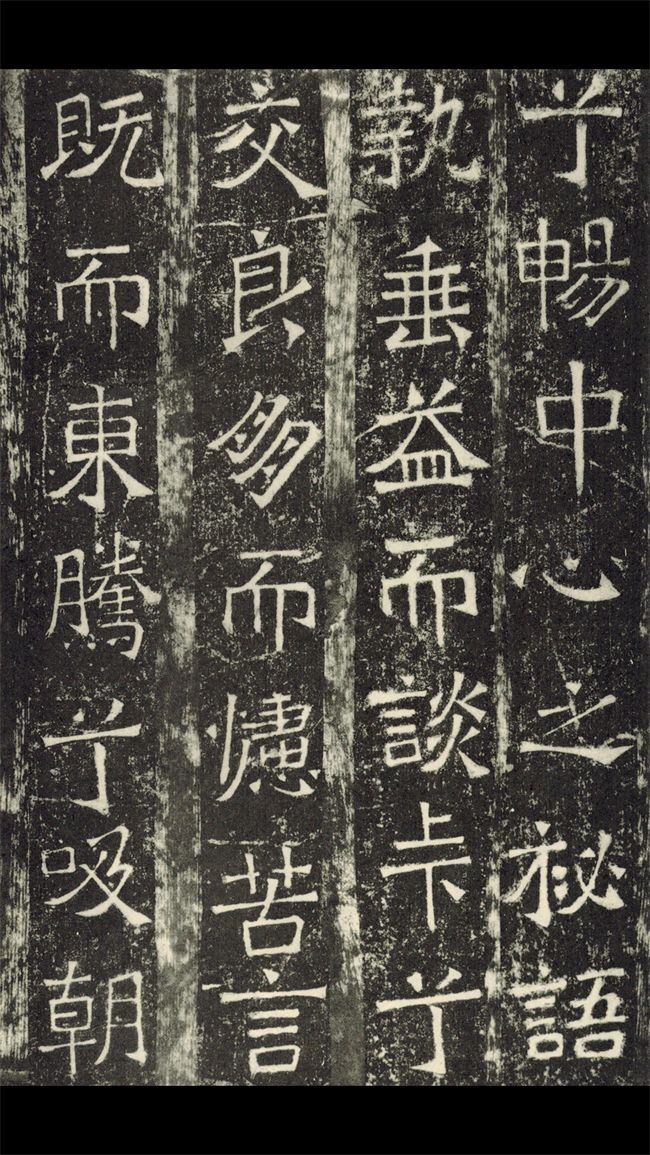 兮暢中心之祕語
執垂益而談卡兮
交良多而苦言
既而東騰兮吸朝